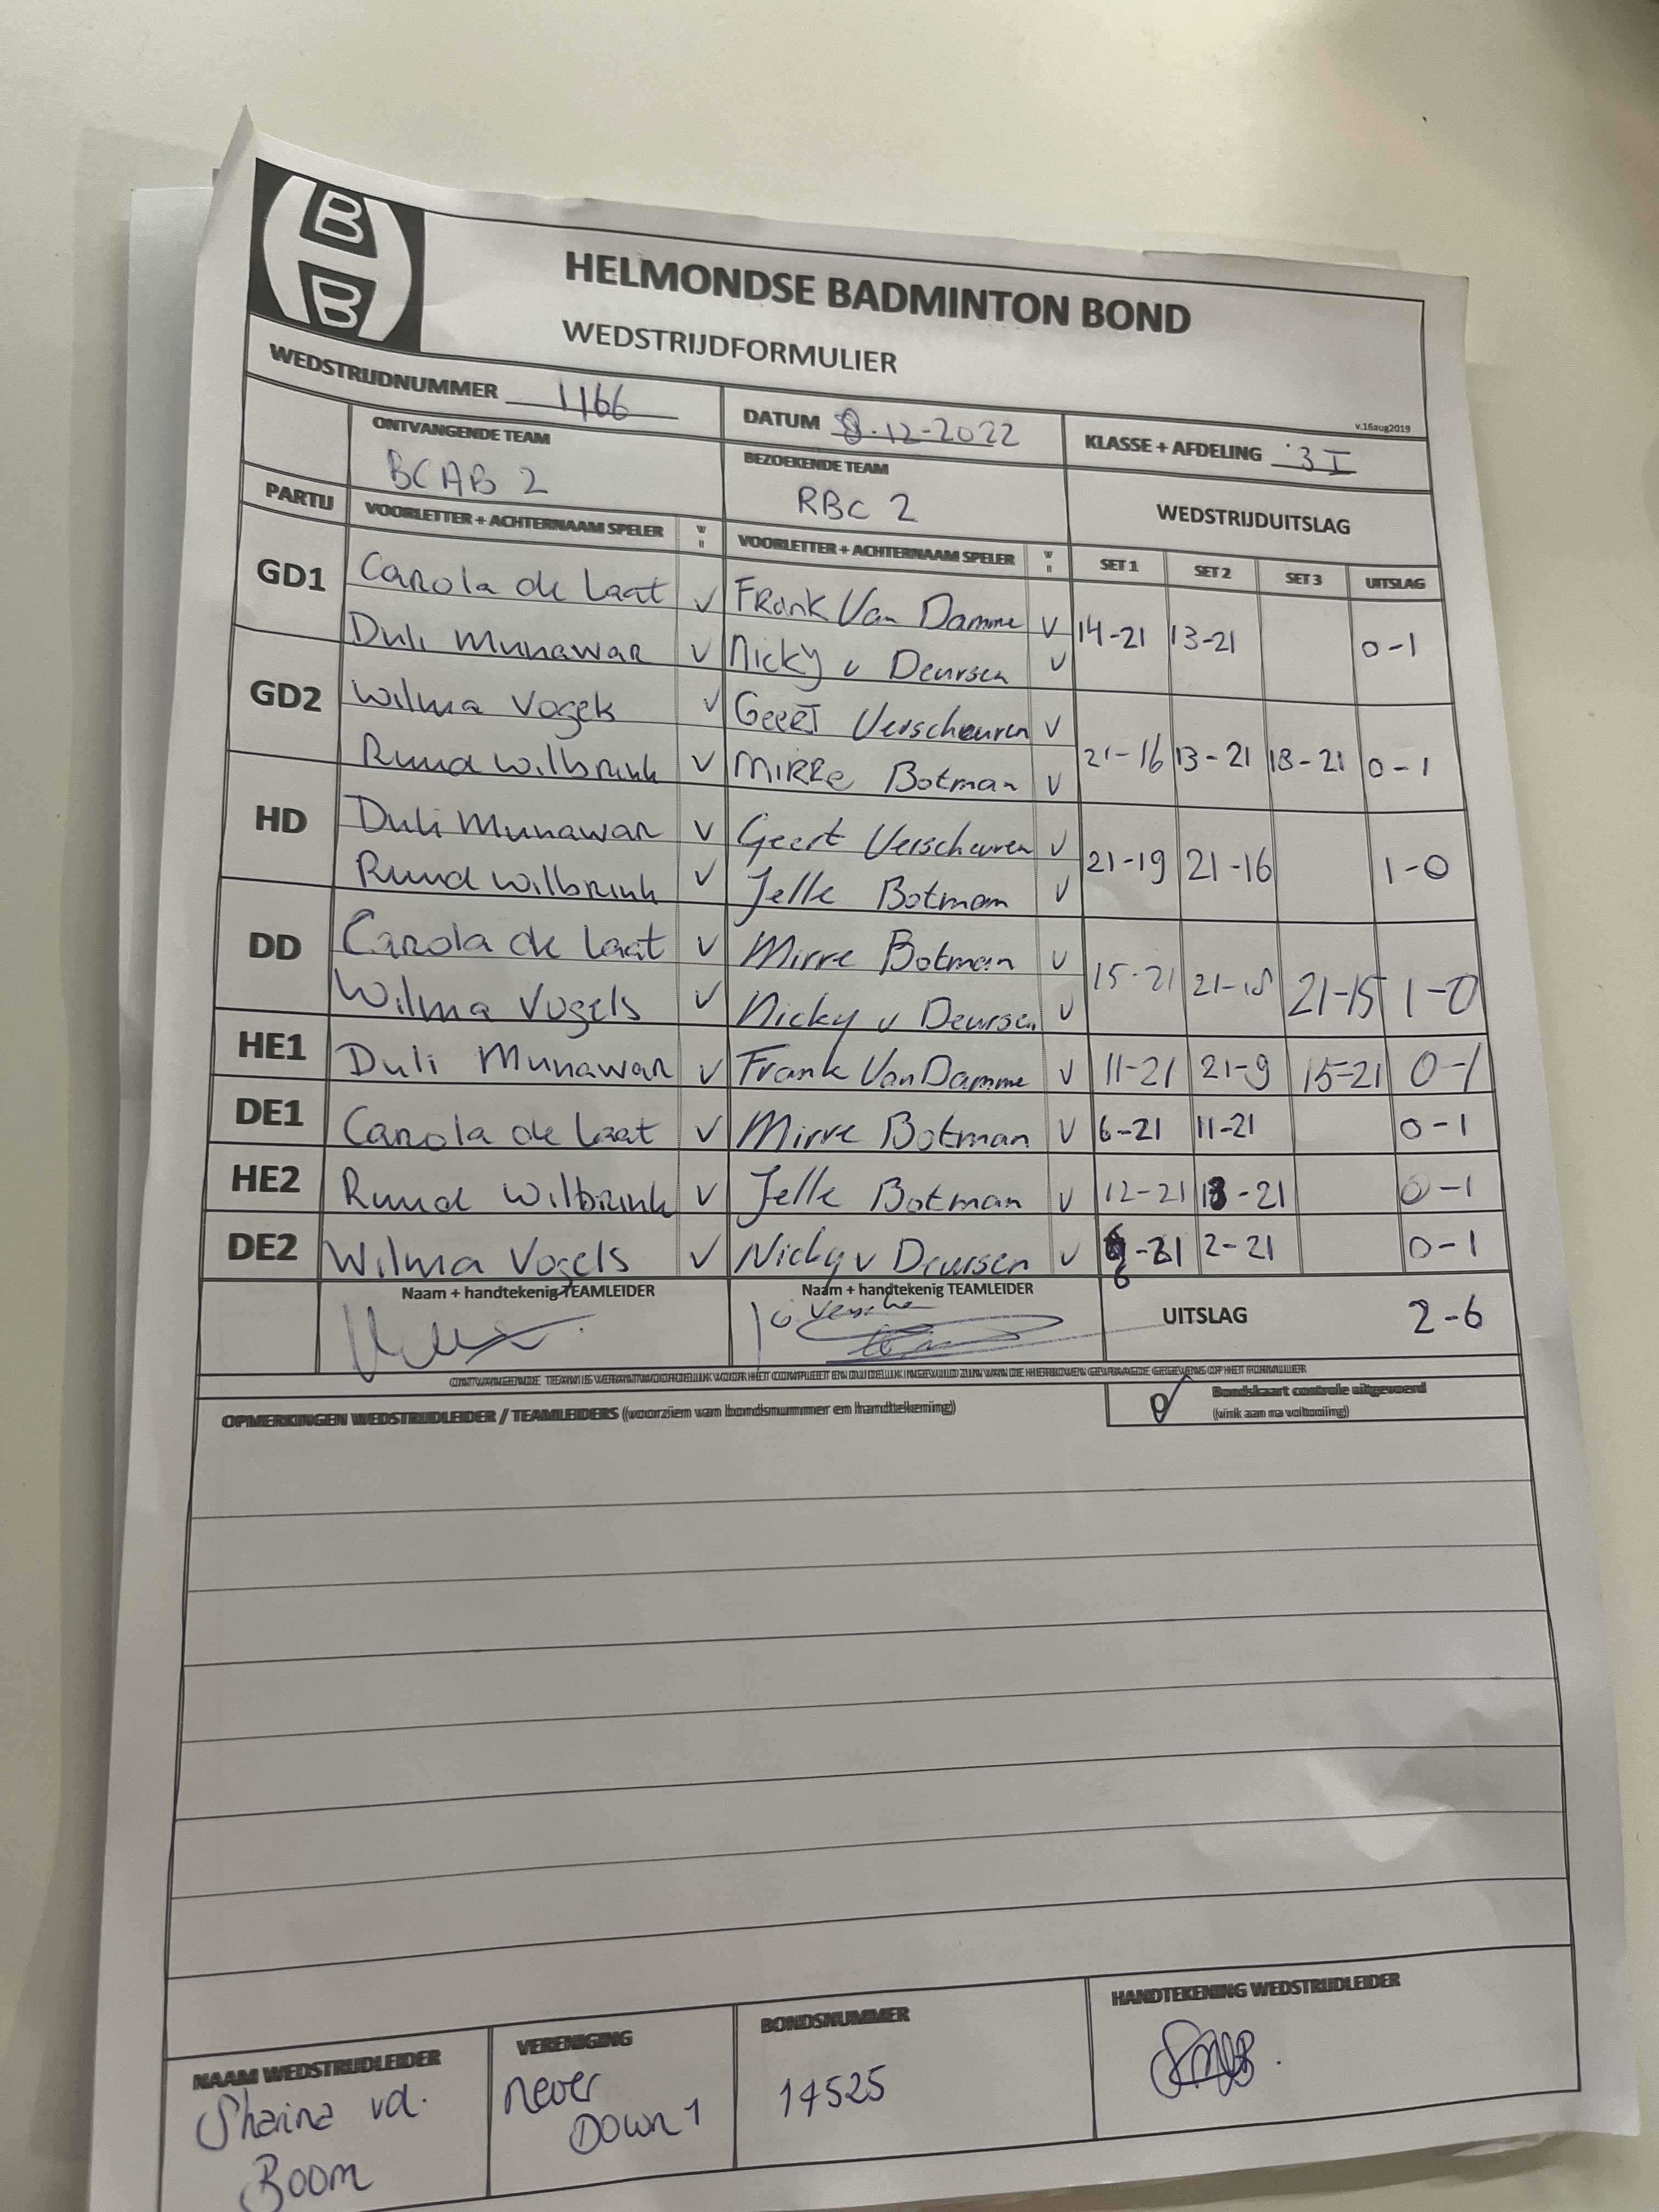 B
B
HELMONDSE BADMINTON BOND
WEDSTRIJDFORMULIER
v.16aug2019
WEDSTRIJDNUMMER 1166 DATUM 8-12-2022 KLASSE + AFDELING 3 I
ONTVANGENDE TEAM BEZOEKENDE TEAM
BCAB 2 RBC 2 WEDSTRIJDUITSLAG
PARTIJ VOORLETTER + ACHTERNAAM SPELER VOORLETTER + ACHTERNAAM SPELER SET 1 SET 2 SET 3 UITSLAG
GD1 Carola de Laat V Frank Van Damme V 14-21 13-21 0-1
Duli Munawar V Nicky v Deursen V
GD2 Wilma Vogels V Geert Verscheuren V 21-16 13-21 18-21 0-1
Ruud Wilbrink V Mirre Botman V
HD Duli Munawar V Geert Verscheuren V 21-19 21-16 1-0
Ruud Wilbrink V Jelle Botman V
DD Carola de Laat V Mirre Botman V 15-21 21-18 21-15 1-0
Wilma Vogels V Nicky v Deursen V
HE1 Duli Munawar V Frank Van Damme V 11-21 21-9 15-21 0-1
DE1 Carola de Laat V Mirre Botman V 6-21 11-21 0-1
HE2 Ruud Wilbrink V Jelle Botman V 12-21 18-21 0-1
DE2 Wilma Vogels V Nicky v Deursen V 6-21 2-21 0-1
Naam + handtekenig TEAMLEIDER Naam + handtekenig TEAMLEIDER UITSLAG 2-6
ONTVANGENDE TEAM IS VERANTWOORDELIJK VOOR HET COMPLEET EN DUIDELIJK INGEVULD ZIJN VAN DE HIERBOVEN GEVRAAGDE GEGEVENS OP HET FORMULIER
OPMERKINGEN WEDSTRIJDLEIDER / TEAMLEIDERS (voorzien van bondsnummer en handtekening) Bondskaart controle uitgevoerd
(vink aan na voltooiing)
NAAM WEDSTRIJDLEIDER VERENIGING BONDSNUMMER HANDTEKENING WEDSTRIJDLEIDER
Sharina vd. never 17525
Boom Down 1